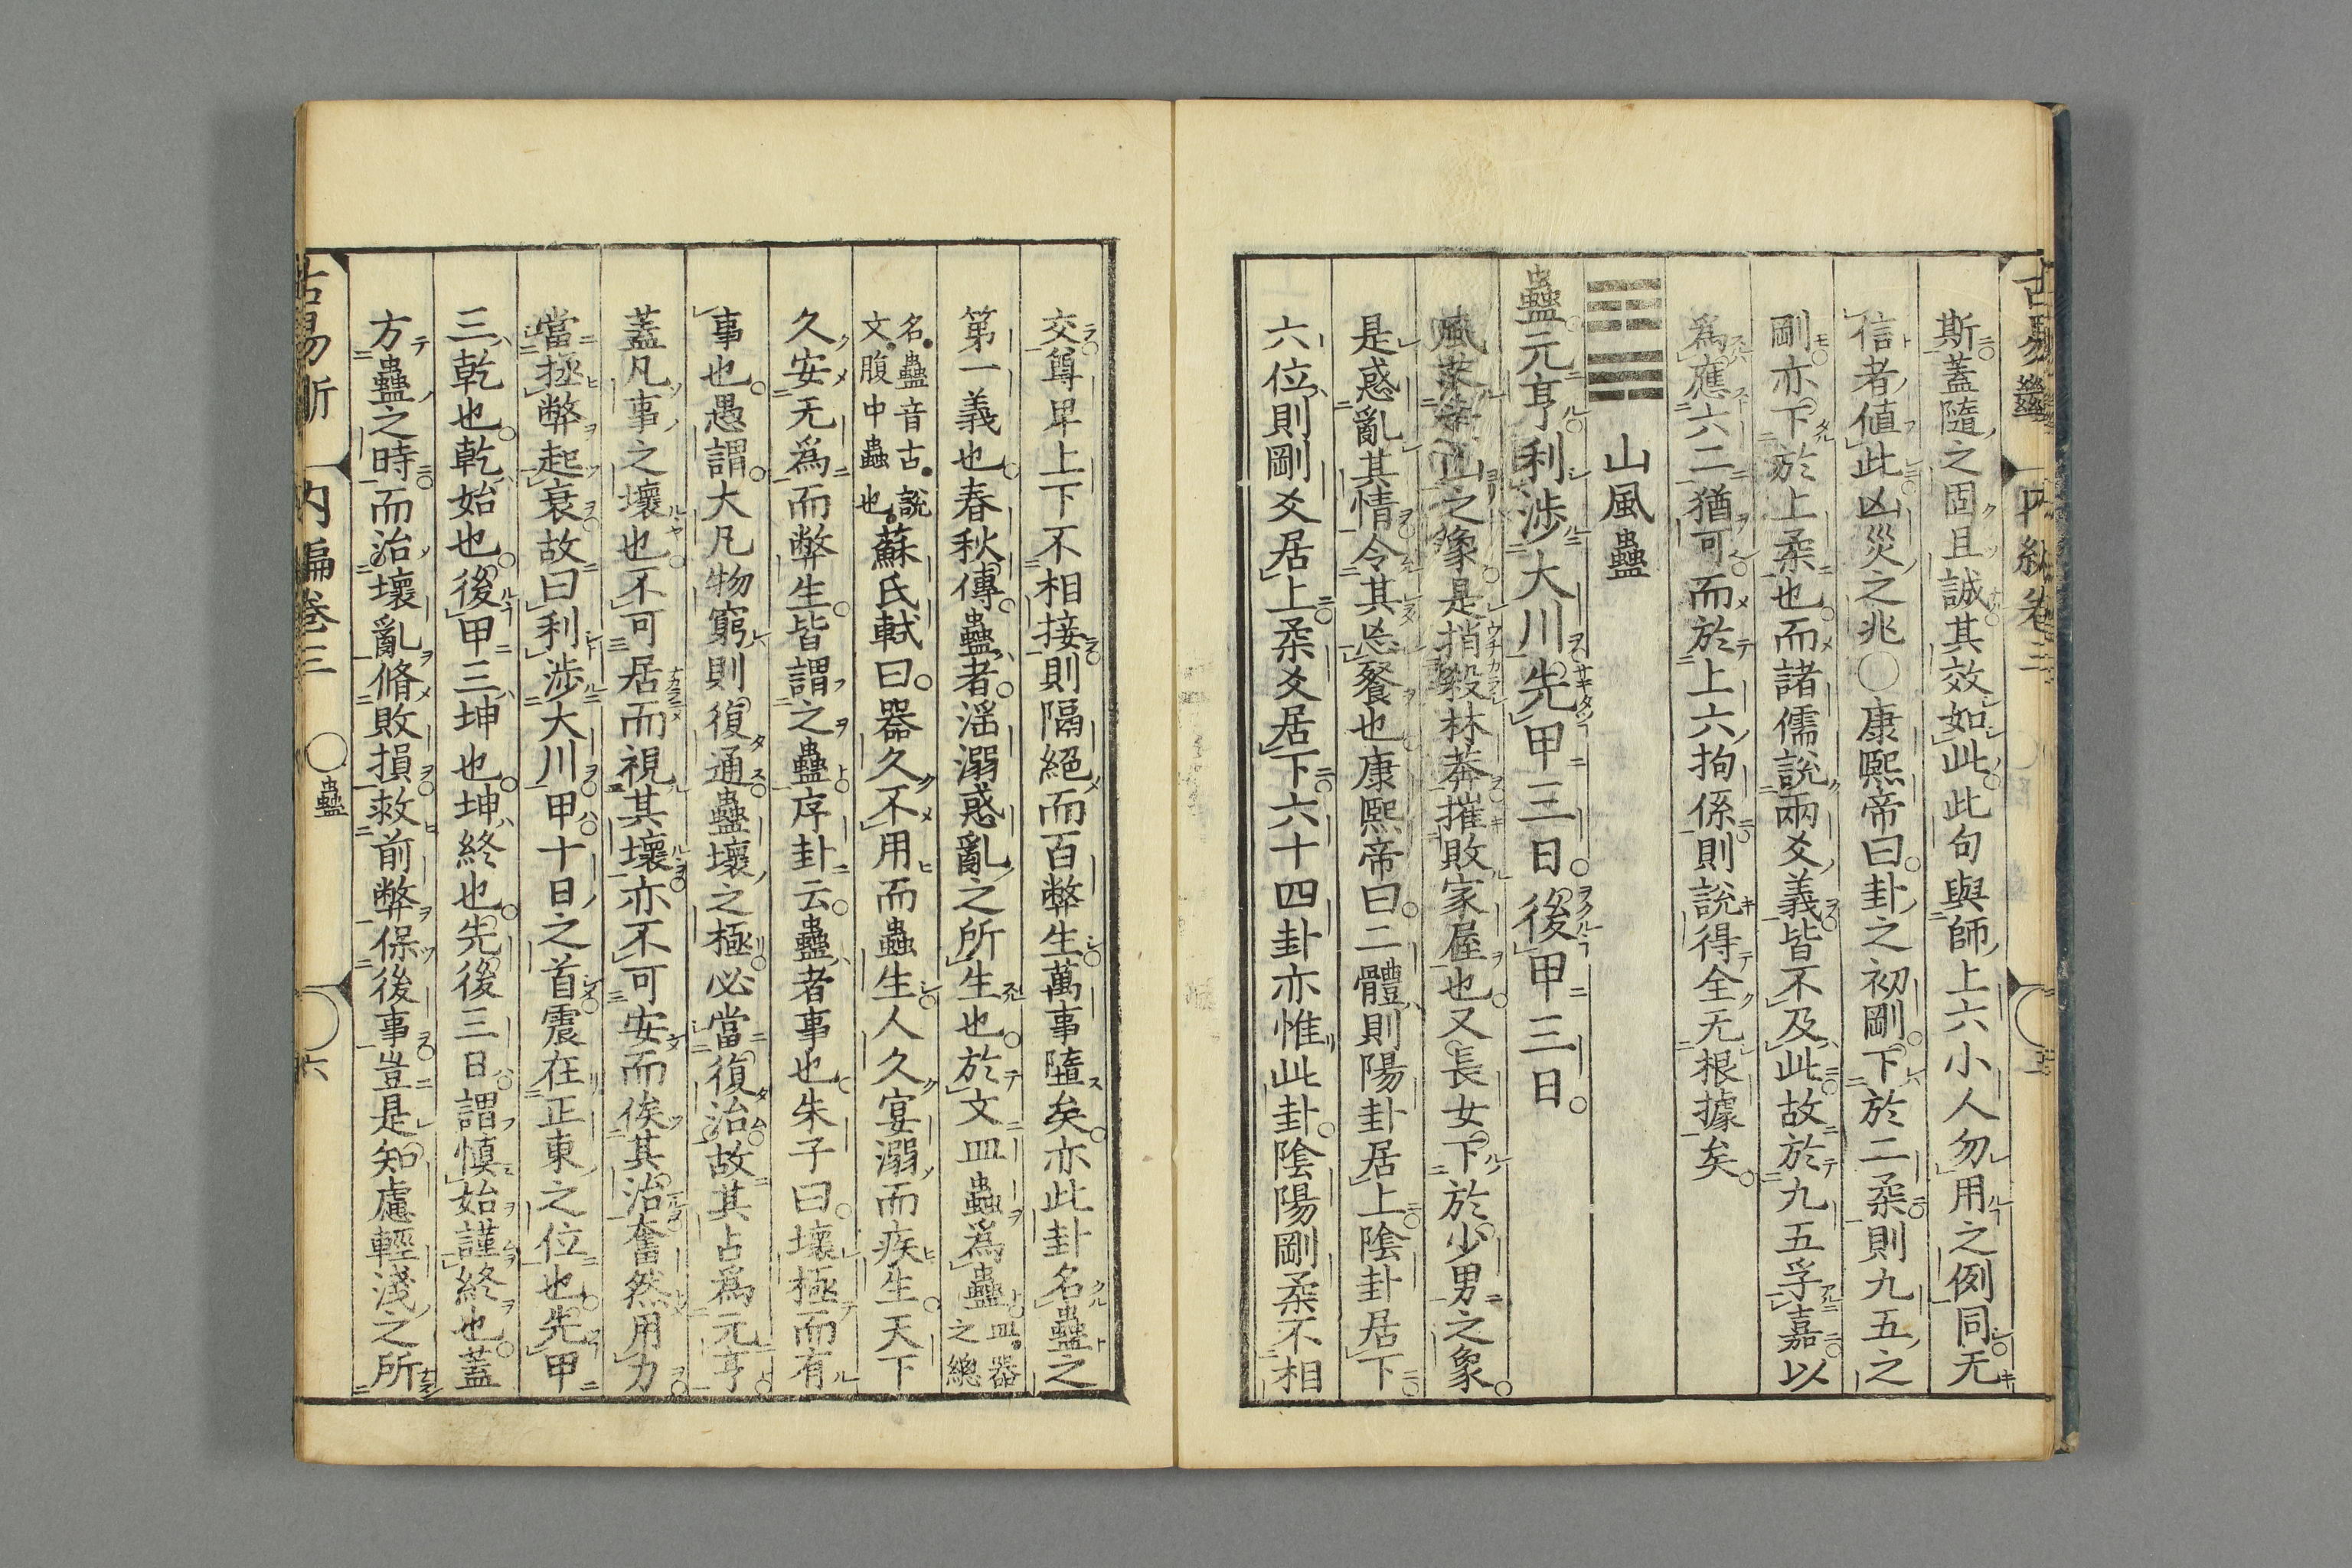 斯蓋隨之固且誠其效如此此句與師上六小人勿用之例同无
信者値此凶災之兆○康熙帝曰卦之初剛下於二柔則九五之
剛亦下於上柔也而諸儒說兩爻義皆不及此故於九五孚嘉以
爲應六二猶可而於上六拘係則說得全无根據矣
山風蠱
蠱元亨利涉大川先甲三日後甲三日
風落山之象是捎殺林莽摧敗家屋也又長女下於少男之象
是惑亂其情令其忘餐也康熙帝曰二體則陽卦居上陰卦居下
六位則剛爻居上柔爻居下六十四卦亦惟此卦陰陽剛柔不相
交尊卑上下不相接則隔絕而百弊生萬事墮矣亦此卦名蠱之
第一義也春秋傳蠱者滛溺惑亂之所生也於文皿蟲爲蠱皿器之總
名蠱音古說文腹中蟲也蘇氏軾曰器久不用而蟲生人久宴溺而疾生天下
久安无爲而弊生皆謂之蠱序卦云蠱者事也朱子曰壞極而有
事也愚謂大凡物窮則復通蠱壞之極必當復治故其占爲元亨
蓋凡事之壞也不可居而視其壞亦不可安而俟其治奮然用力
當拯弊起衰故曰利涉大川甲十日之首震在正東之位也先甲
三乾也乾始也後甲三坤也坤終也先後三日謂愼始謹終也蓋
方蠱之時而治壞亂脩敗損救前弊保後事豈是知慮輕淺之所
內編卷三 ○蠱 六